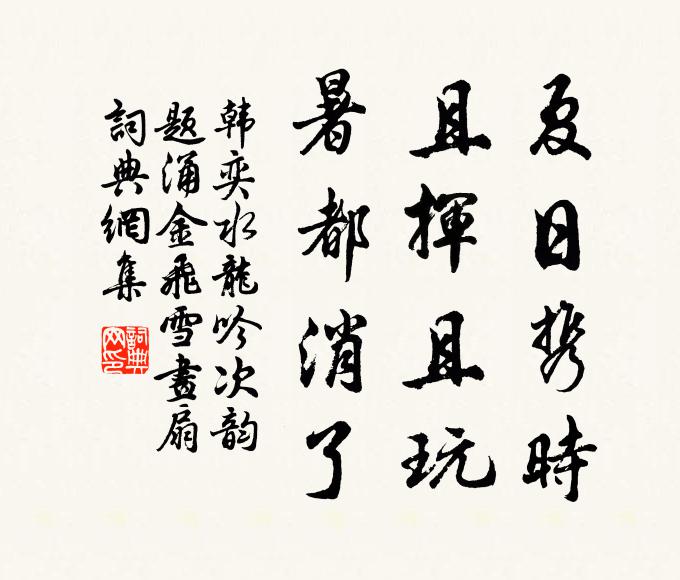 夏日携時
且揮且玩
暑都消了
韩奕水龍吟次韵
题涌金飛雪畫扇
詞典網集
詞典网印